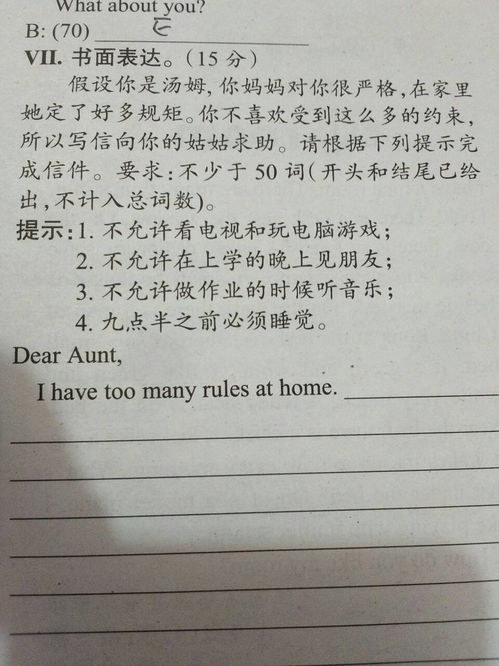 What about you?
B: (70) E
VII. 书面表达。(15 分)
假设你是汤姆,你妈妈对你很严格,在家里
她定了好多规矩。你不喜欢受到这么多的约束,
所以写信向你的姑姑求助。请根据下列提示完
成信件。要求:不少于 50 词(开头和结尾已给
出,不计入总词数)。
提示:1. 不允许看电视和玩电脑游戏;
2. 不允许在上学的晚上见朋友;
3. 不允许做作业的时候听音乐;
4. 九点半之前必须睡觉。
Dear Aunt,
I have too many rules at home.